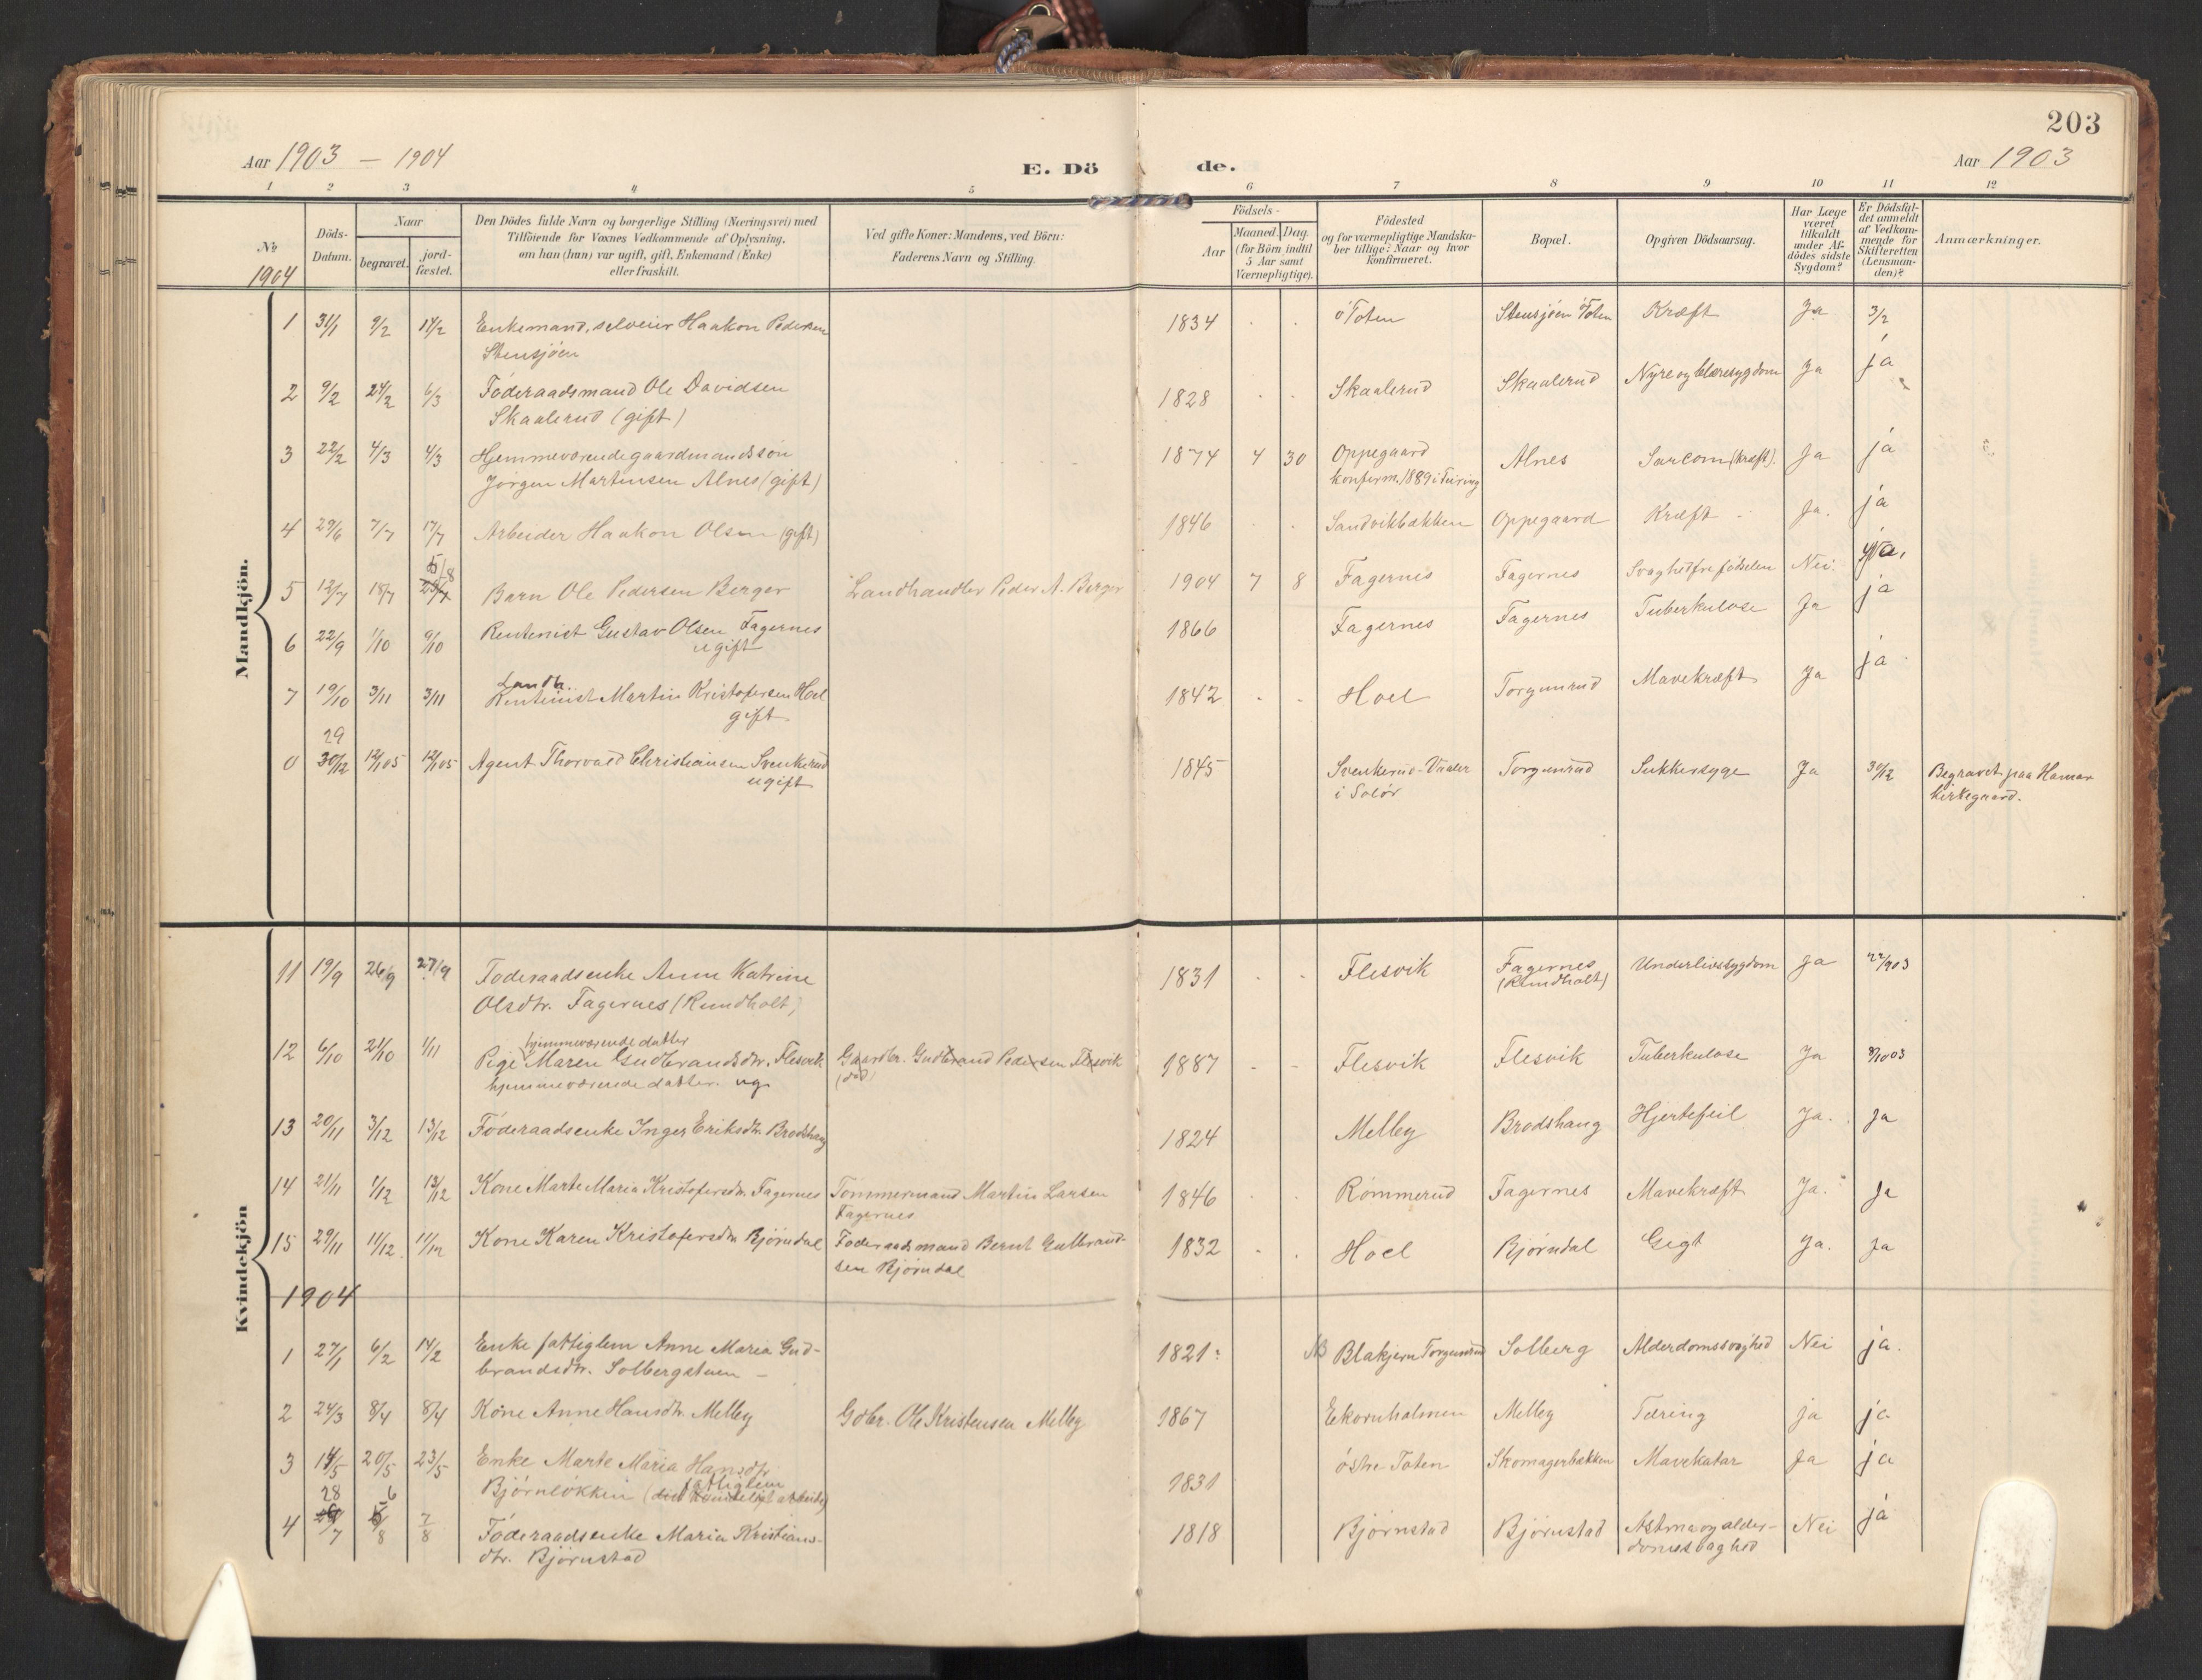 203
Aar 1903 — 1904
E. Dö
de.
Aar 1903
1 2 3 4 5 6 7 8 9 10 11 12
No
1904
Döds-
Datum.
Naar
begravet.
jord-
fæstet.
Den Dödes fulde Navn og borgerlige Stilling (Næringsvei) med
Tilföiende for Voxnes Vedkommende af Oplysning,
om han (hun) var ugift, gift, Enkemand (Enke)
eller fraskilt.
Ved gifte Koner: Mandens, ved Börn:
Faderens Navn og Stilling.
Födsels-
Aar
Maaned. Dag.
(for Börn indtil
5 Aar samt
Værnepligtige).
Födested
og for værnepligtige Mandska-
ber tillige: Naar og hvor
konfirmeret.
Bopæl.
Opgiven Dödsaarsag.
Har Læge
været
tilkaldt
under Af-
dödes sidste
Sygdom?
Er Dödsfal-
det anmeldt
af Vedkom-
mende for
Skifteretten
(Lensman-
den)?
Anmærkninger.
Mandkjön.
1 31/1 9/2 14/2 Enkemand, selveier Haakon Pedersen 1834 . . ö Toten Stensjöen ö Toten Kræft Ja 3/2
Stensjöen
2 9/2 24/2 6/3 Föderaadsmand Ole Davidsen 1828 . . Skaalerud Skaalerud Nyre og blæresygdom Ja ja
Skaalerud (gift)
3 22/2 4/3 4/3 Hjemmeværende gaardmandssön 1874 4 30 Oppegaard Alnes Sarcom (kræft). Ja ja
Jörgen Martinsen Alnes (gift) konferm. 1889 i Feiring
4 29/6 7/7 17/7 Arbeider Haakon Olsen (gift) 1846 . . Sandvikbækken Oppegaard Kræft - Ja. ja
5/8
5 12/7 18/7 Barn Ole Pedersen Berger Landhandler Peder A. Berger 1904 7 8 Fagernes Fagernes Svaghed fra födselen Nei. ja.
6 22/9 1/10 9/10 Rentenist Gustav Olsen Fagernes 1866 Fagernes Fagernes Tuberkulose Ja ja
ugift
Landh.
7 19/10 3/11 3/11 Rentenist Martin Kristofersen Hoel 1842 . . Hoel Torgunrud Mavekræft Ja ja
gift
29
0 30/12 12/1 05 12/1 05 Agent Thorvald Christiansen Svenkerud 1845 Svenkerud-Vaaler Torgunrud Sukkersyge Ja 30/12 Begravet paa Hamar
ugift i Solör kirkegaard.
Kvindekjön
11 19/9 26/9 27/9 Föderaadsenke Anne Katrine 1831 . . Flesvik Fagernes Underlivssygdom ja 22/9 03
Olsdtr. Fagernes (Rundholt) (Rundholt)
hjemmeværende datter
12 6/10 21/10 1/11 Pige Maren Gudbrandsdtr. Flesvik Gaardbr. Gudbrand Pedersen Flesvik 1887 - - Flesvik Flesvik Tuberkulose Ja 8/10 03
hjemmeværende datter. ug. (död)
13 20/11 3/12 13/12 Föderaadsenke Inger Eriksdtr. Brodshaug 1824 Melby Brodshaug Hjertefeil Ja. Ja
14 21/11 1/12 13/12 Kone Marte Maria Kristofersdtr. Fagernes Tömmermand Martin Larsen 1846 . . Römmerud Fagernes Mavekræft Ja. Ja
Fagernes
15 29/11 11/12 11/12 Kone Karen Kristofersdtr. Björndal Föderaadsmand Bernt Gulbrand- 1832 . . Hoel Björndal Gigt Ja. Ja
sen Björndal
1904
1 27/1 6/2 14/2 Enke fattiglem Anne Maria Gud- 1821: Blakjern Torgunrud Solberg Alderdomssvaghed Nei ja.
brandsdtr. Solbergstuen —
2 24/3 8/4 8/4 Kone Anne Hansdtr. Melby Gdbr. Ole Kristensen Melby 1867 Ekornholmen Melby Tæring ja ja
3 14/5 20/5 23/5 Enke Marte Maria Hansdtr. 1831 östre Toten Skomagerbækken Mavekatar Ja ja
fattiglem
Björnlökken
28 6
4 7 8 7/8 Föderaadsenke Maria Kristians- 1818 Björnstad Björnstad Astma og alder- Nei ja
dtr. Björnstad domssvaghed